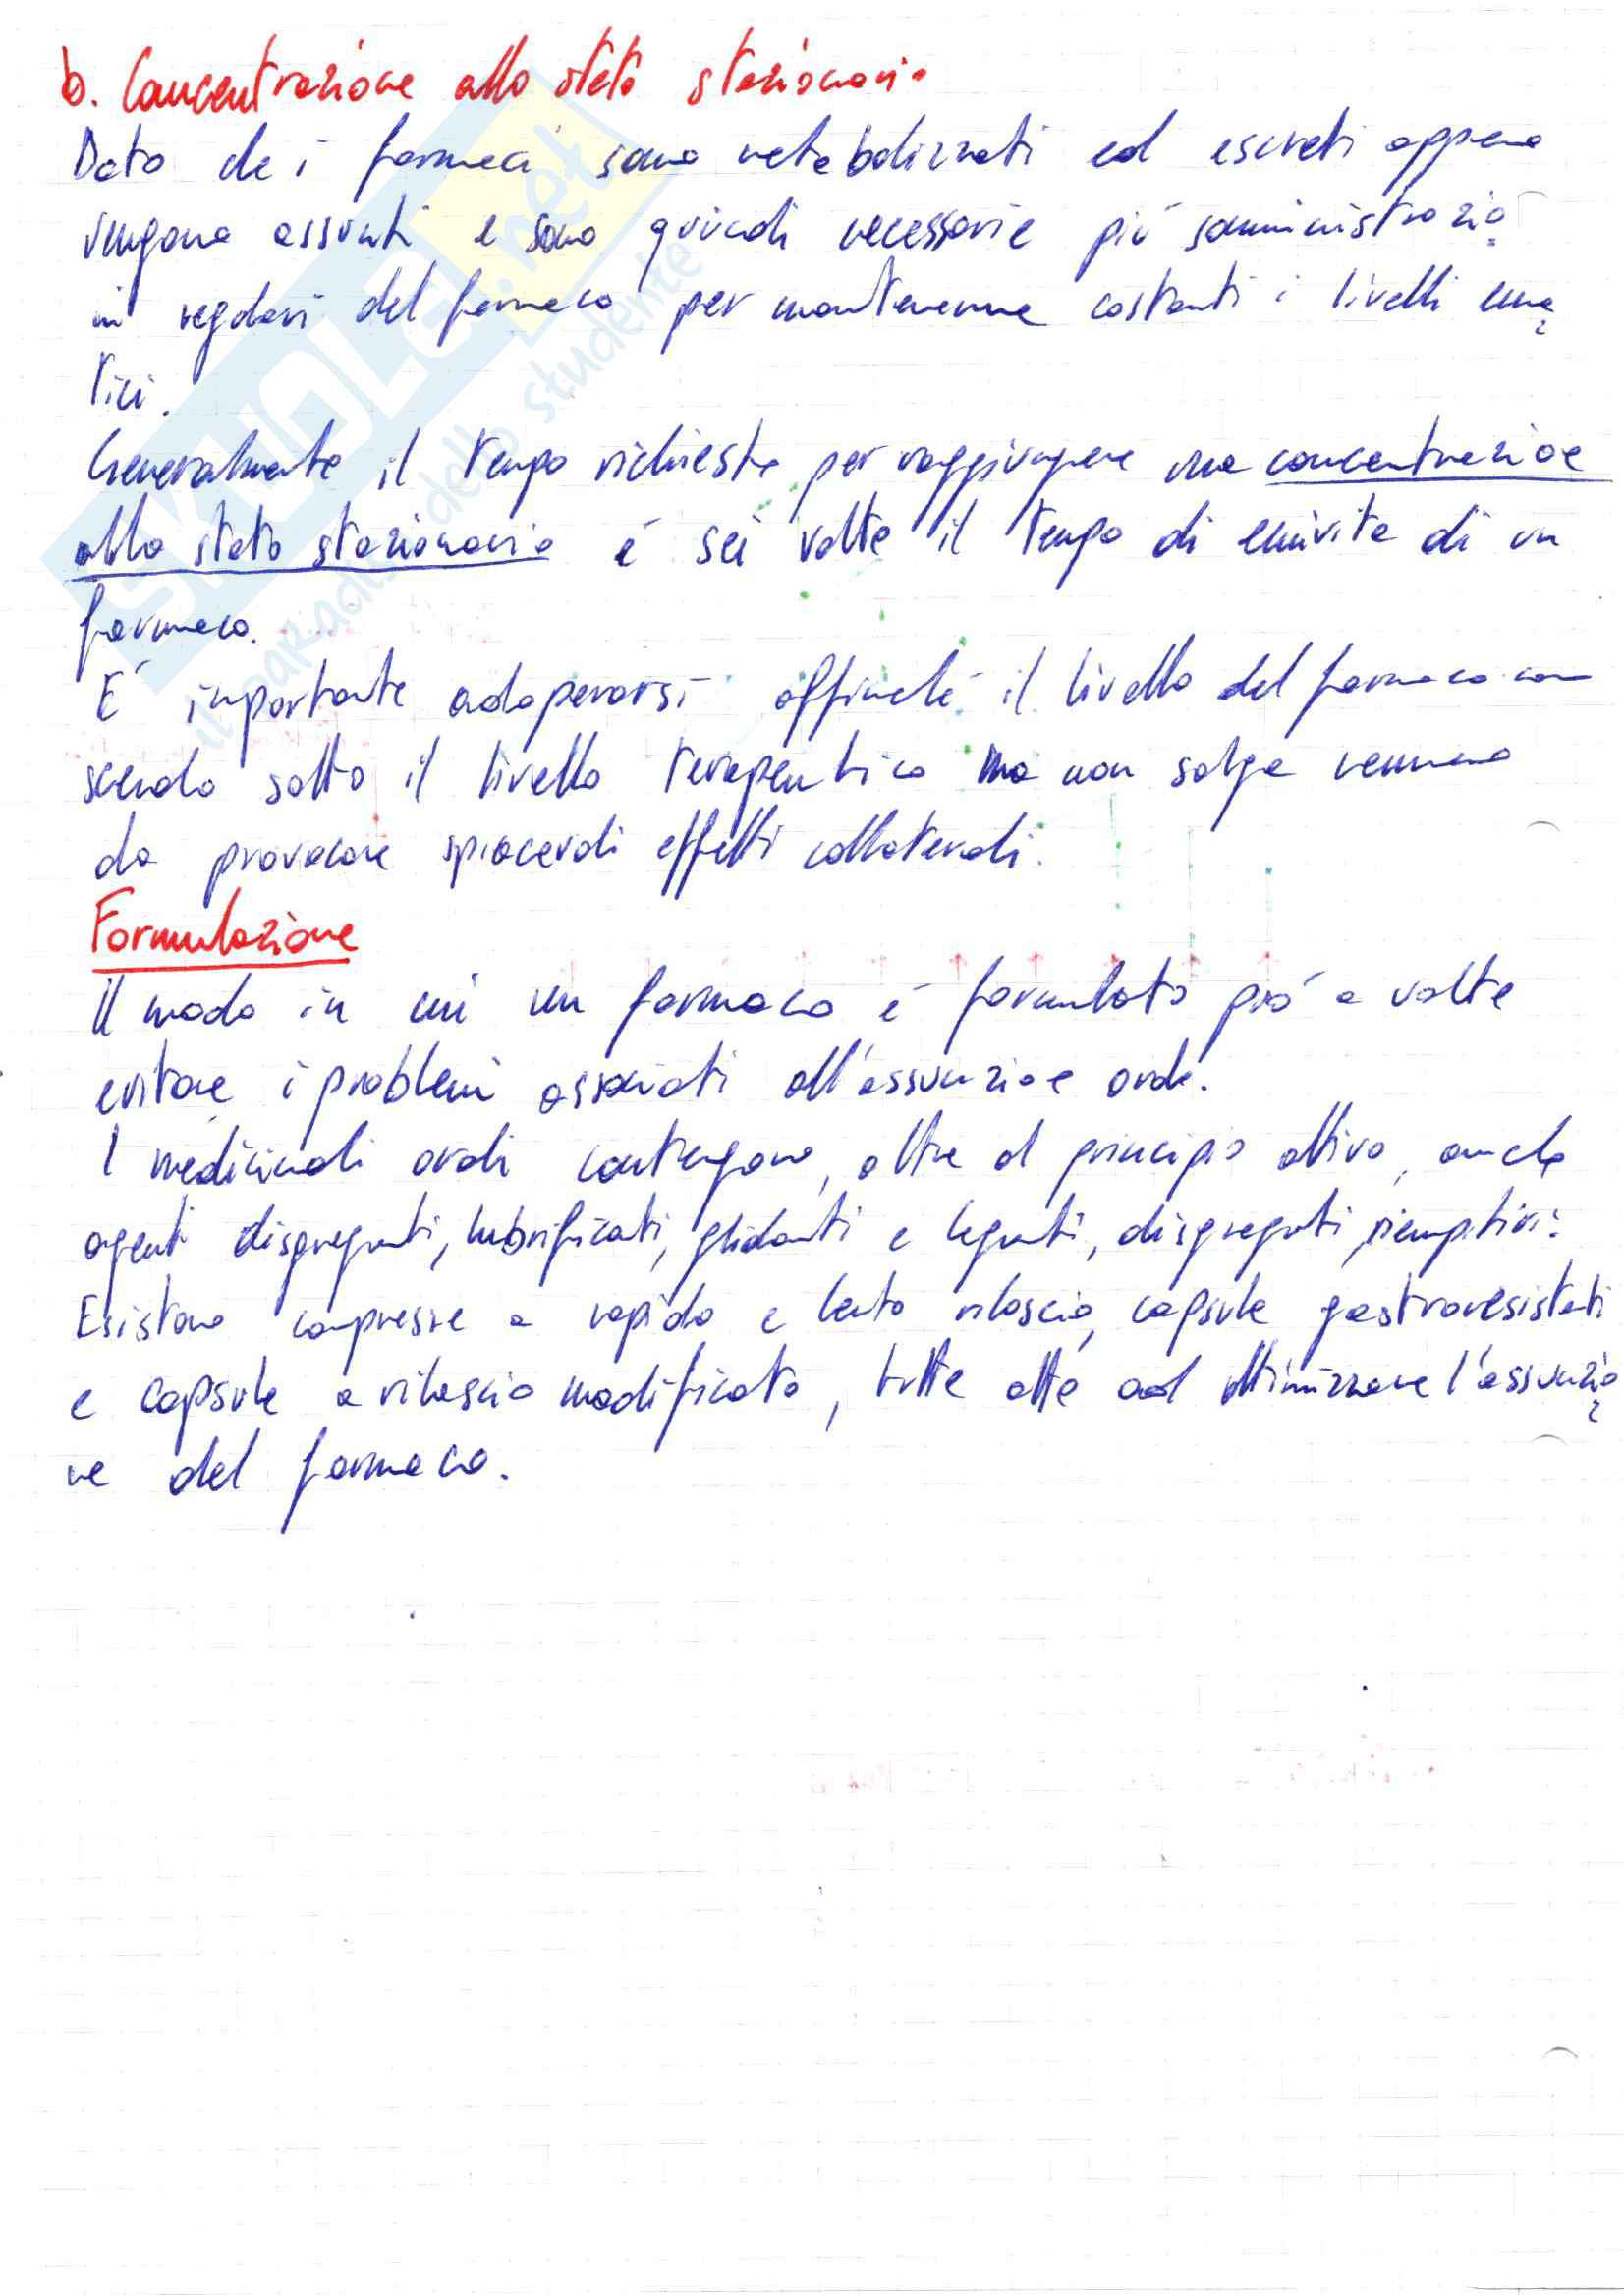 b. Concentrazione allo stato stazionario
Dato che i farmaci sono metabolizzati ed escreti appena
vengono assunti e sono quindi necessarie più somministrazio
ni regolari del farmaco per mantenerne costanti i livelli ema
tici.
Generalmente il tempo richiesto per raggiungere una concentrazione
allo stato stazionario é sei volte il tempo di emivita di un
farmaco.
É importante adoperarsi affinché il livello del farmaco non
scenda sotto il livello terapeutico ma non salga nemmeno
da provocare spiacevoli effetti collaterali.
Formulazione
Il modo in cui un farmaco é formulato può a volte
evitare i problemi associati all'assunzione orale.
I medicinali orali contengono, oltre al principio attivo, anche
agenti disgreganti, lubrificanti, glidanti e leganti, disgreganti, riempitivi.
Esistono compresse a rapido e lento rilascio, capsule gastroresistenti
e capsule a rilascio modificato, tutte atte ad ottimizzare l'assunzio
ne del farmaco.
SKUOLA.net
il paradiso dello studente